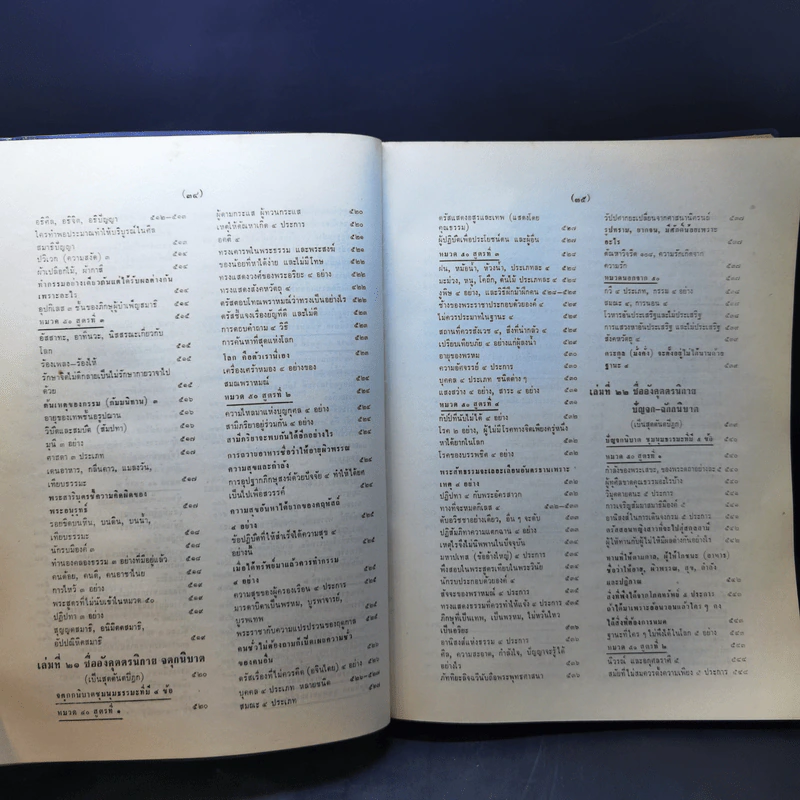 (๓๔)
อธิศีล, อธิจิต, อธิปัญญา ๕๑๒-๕๑๓
ใครทำพอประมาณทำให้บริบูรณ์ในศีล
สมาธิปัญญา ๕๑๔
ปวิเวก (ความสงัด) ๓ ๕๑๔
ผ้าเปลือกไม้, ผ้ากาสี ๕๑๔
ทำกรรมอย่างเดียวกันแต่ได้รับผลต่างกัน
เพราะอะไร ๕๑๔
อุปกิเลส ๓ ชั้นของภิกษุผู้บำเพ็ญสมาธิ
หมวด ๕๐ สูตรที่ ๓ ๕๑๕
อัสสาทะ, อาทินวะ, นิสสรณะเกี่ยวกับ
โลก ๕๑๕
ร้องเพลง-ร้องไห้ ๕๑๕
รักษาจิตไม่ดีกลายเป็นไม่รักษากายวาจาไป
ด้วย ๕๑๕
ต้นเหตุของกรรม (กัมมนิทาน) ๓ ๕๑๖
อายุของเทพชั้นอรูปฌาน ๕๑๖
วิบัติและสมบัติ (สัมปทา) ๕๑๗
มุนี ๓ อย่าง ๕๑๗
ศาสดา ๓ ประเภท ๕๑๗
เดนอาหาร, กลิ่นคาว, แมลงวัน,
เทียบธรรมะ ๕๑๗
พระสารีบุตรชี้ความคิดผิดของ
พระอนุรุทธ์ ๕๑๗
รอยขีดบนหิน, บนดิน, บนน้ำ,
เทียบธรรมะ ๕๑๘
นักรบมีองค์ ๓ ๕๑๘
ทำนองคลองธรรม ๓ อย่างที่มีอยู่แล้ว ๕๑๘
คนด้อย, คนดี, คนอาชาไนย ๕๑๘
การไหว้ ๓ อย่าง ๕๑๙
พระสูตรที่ไม่นับเข้าในหมวด ๕๐ ๕๑๙
ปฏิปทา ๓ อย่าง ๕๑๙
สุญญตสมาธิ, อนิมิตตสมาธิ,
อัปปณิหิตสมาธิ ๕๑๙
เล่มที่ ๒๑ ชื่ออังคุตตรนิกาย จตุกนิบาต
(เป็นสุตตันตปิฎก) ๕๒๐
จตุกกนิบาตชุมนุมธรรมะที่มี ๔ ข้อ
หมวด ๕๐ สูตรที่ ๑ ๕๒๐
ผู้ตามกระแส ผู้ทวนกระแส ๕๒๐
เหตุให้ตัณหาเกิด ๔ ประการ ๕๒๐
อคติ ๔ ๕๒๑
ทรงเคารพในพระธรรม และพระสงฆ์ ๕๒๑
ของน้อยที่หาได้ง่าย และไม่มีโทษ ๕๒๑
ทรงแสดงวงศ์ของพระอริยะ ๔ อย่าง ๕๒๒
ทรงแสดงสังคหวัตถุ ๔ ๕๒๒
ตรัสตอบโทณพราหมณ์ว่าทรงเป็นอย่างไร ๕๒๒
ตรัสชี้แจงเรื่องบัญที่ดี และไม่ดี ๕๒๓
การตอบคำถาม ๔ วิธี ๕๒๓
การค้นหาที่สุดแห่งโลก ๕๒๓
โลก ที่อตัวเรานี่เอง ๕๒๓
เครื่องเศร้าหมอง ๔ อย่างของ
สมณพราหมณ์ ๕๒๔
หมวด ๕๐ สูตรที่ ๒ ๕๒๔
ความไหลมาแห่งบุญกุศล ๔ อย่าง ๕๒๔
สามีภริยาอยู่ร่วมกัน ๔ อย่าง ๕๒๔
สามีภริยาจะพบกันได้อีกอย่างไร ๕๒๔
การถวายอาหารชื่อว่าให้อายุผิวพรรณ
ความสุขและกำลัง ๕๒๕
การอุปฐากภิกษุสงฆ์ด้วยปัจจัย ๔ ทำให้ได้ยศ
เป็นไปเพื่อสวรรค์ ๕๒๕
ความสงบันหาได้ยากของคฤหัสถ์
๔ อย่าง ๕๒๕
ข้อปฏิบัติที่ให้สำเร็จได้ความสุข ๔
อย่างนั้น ๕๒๕
เมื่อได้ทรัพย์มาแล้วควรทำกรรม
๔ อย่าง ๕๒๖
ความสุขของผู้ครองเรือน ๔ ประการ ๕๒๖
มารดาบิดาเป็นพรหม, บูรพาจารย์,
บูรพเทพ ๕๒๖
พระราชากับความแปรปรวนของฤดูกาล ๕๒๖
คนชั่วไม่ต้องถามก็เปิดเผยความชั่ว
ของคนอื่น ๕๒๖
ตรัสเรื่องที่ไม่ควรคิด (อจินไตย) ๔ อย่าง ๕๒๖
บุคคล ๔ ประเภท หลายชนิด ๕๒๖-๕๒๗
สมณะ ๔ ประเภท ๕๒๗
(๓๕)
ตรัสแสดงอสูรและเทพ (แสดงโดย
คุณธรรม) ๕๒๗
ผู้ปฏิบัติเพื่อประโยชน์ตน และผู้อื่น ๕๒๘
หมวด ๕๐ สูตรที่ ๓ ๕๒๘
ฝน, หม้อน้ำ, ห้วงน้ำ, ประเภทละ ๔ ๕๒๘
มะม่วง, หนู, โคถึก, ต้นไม้ ประเภทละ ๔ ๕๒๘
งูพิษ ๔ อย่าง, และวิธีฝึกม้าฝึกคน ๕๒๘-๕๒๙
ช้างของพระราชาประกอบด้วยองค์ ๔ ๕๒๙
ไม่ควรประมาทในฐานะ ๔ ๕๒๙
สถานที่ควรสังเวช ๔, สิ่งที่น่ากลัว ๔ ๕๒๙
เปรียบเทียบภัย ๔ อย่างแก่ผู้ลงน้ำ ๕๓๐
อายุของพรหม ๕๓๐
ความอัศจรรย์ ๔ ประการ ๕๓๐
บุคคล ๔ ประเภท ชนิดต่างๆ ๕๓๑
แสงสว่าง ๔ อย่าง, สาระ ๔ อย่าง ๕๓๑
หมวด ๕๐ สูตรที่ ๔ ๕๓๑
กัปป์ที่นับไม่ได้ ๔ อย่าง ๕๓๑
โรค ๒ อย่าง, ผู้ไม่มีโรคทางจิตเพียงครู่หนึ่ง
หาได้ยากในโลก ๕๓๑
โรคของบรรพชิต ๔ อย่าง ๕๓๒
พระสัทธรรมจะเลอะเลือนอันตรธานเพราะ
เหตุ ๔ อย่าง ๕๓๒
ปฏิปทา ๔ กับพระอัครสาวก ๕๓๒
ทางที่จะหมดกิเลส ๔ ๕๓๒-๕๓๓
ดับอวิชชาอย่างเดียว, อื่น ๆ จะดับ ๕๓๓
ปฏิสัมภิทาความแตกฉาน ๔ อย่าง ๕๓๓
เหตุไรจึงไม่นิพพานในปัจจุบัน ๕๓๓
มหาปเทส (ข้ออ้างใหญ่) ๔ ประการ ๕๓๔
พึงสอบในพระสูตรเทียบในพระวินัย ๕๓๔
นักรบประกอบด้วยองค์ ๔ ๕๓๔
สัจจะของพราหมณ์ ๔ ประการ ๕๓๔
ทรงแสดงธรรมที่ควรทำให้แจ้ง ๔ ประการ ๕๓๕
ภิกษุที่เป็นเทพ, เป็นพรหม, ไม่หวั่นไหว
เป็นอริยะ ๕๓๕
อานิสงส์แห่งธรรม ๔ อย่าง ๕๓๕
ศีล, ความสะอาด, กำลังใจ, ปัญญาจะรู้ได้
อย่างไร ๕๓๖
ภัททิยะลิจฉวีนับถือพระพุทธศาสนา ๕๓๖
วัปปศากยะเปลี่ยนจากศาสนานิครนถ์ ๕๓๗
รูปทราม, ยากจน, มีศักดิ์น้อยเพราะ
อะไร ๕๓๗
ตัณหาวิจริต ๑๐๘, ความรักเกิดจาก
ความรัก ๕๓๘
หมวดนอกจาก ๕๐ ๕๓๘
กวี ๔ ประเภท, กรรม ๔ อย่าง
สมณะ ๔, การนอน ๔
โวหารอันประเสริฐและไม่ประเสริฐ
การแสวงหาอันประเสริฐและไม่ประเสริฐ
สังคหวัตถุ ๔
ตระกูล (มั่งคั่ง) จะตั้งอยู่ไม่ได้นานด้วย
ฐานะ ๔
เล่มที่ ๒๒ ชื่ออังคุตตรนิกาย
ปัญจก-ฉักกนิบาต
(เป็นสุตตันตปิฎก)
ปัญจกนิบาต ชุมนุมธรรมะที่มี ๕ ข้อ
หมวด ๕๐ สูตรที่ ๑
กำลังของพระเสขะ, ของพระตถาคตอย่างละ ๕
ผู้ทุศีลขาดคุณธรรมอะไรบ้าง
วิมุตตายตนะ ๕ ประการ
การเจริญสัมมาสมาธิมีองค์ ๕
อานิสงส์ในการเดินจงกรม ๕ ประการ
ตรัสสอนหญิงสาวที่จะไปสู่สกุลสามี
ผู้ให้ทานกับผู้ไม่ให้มีผลต่างกันอย่างไร
ทานที่ให้ตามกาล, ผู้ให้โภชนะ (อาหาร)
ชื่อว่าให้อายุ, ผิวพรรณ, สุข, กำลัง
และปฏิภาณ
สิ่งที่พึงได้จากโภคทรัพย์ ๕ ประการ
ถ้าได้มาเพราะอ้อนวอนแล้วใคร ๆ คง
ได้สิ่งที่ต้องการหมด
ฐานะที่ใคร ๆ ไม่พึงได้ในโลก ๕ อย่าง
หมวด ๕๐ สูตรที่ ๒
นีวรณ์ และอกุศลราศี ๕
สมัยที่ไม่สมควรตั้งความเพียร ๕ ประการ ๕๔๔